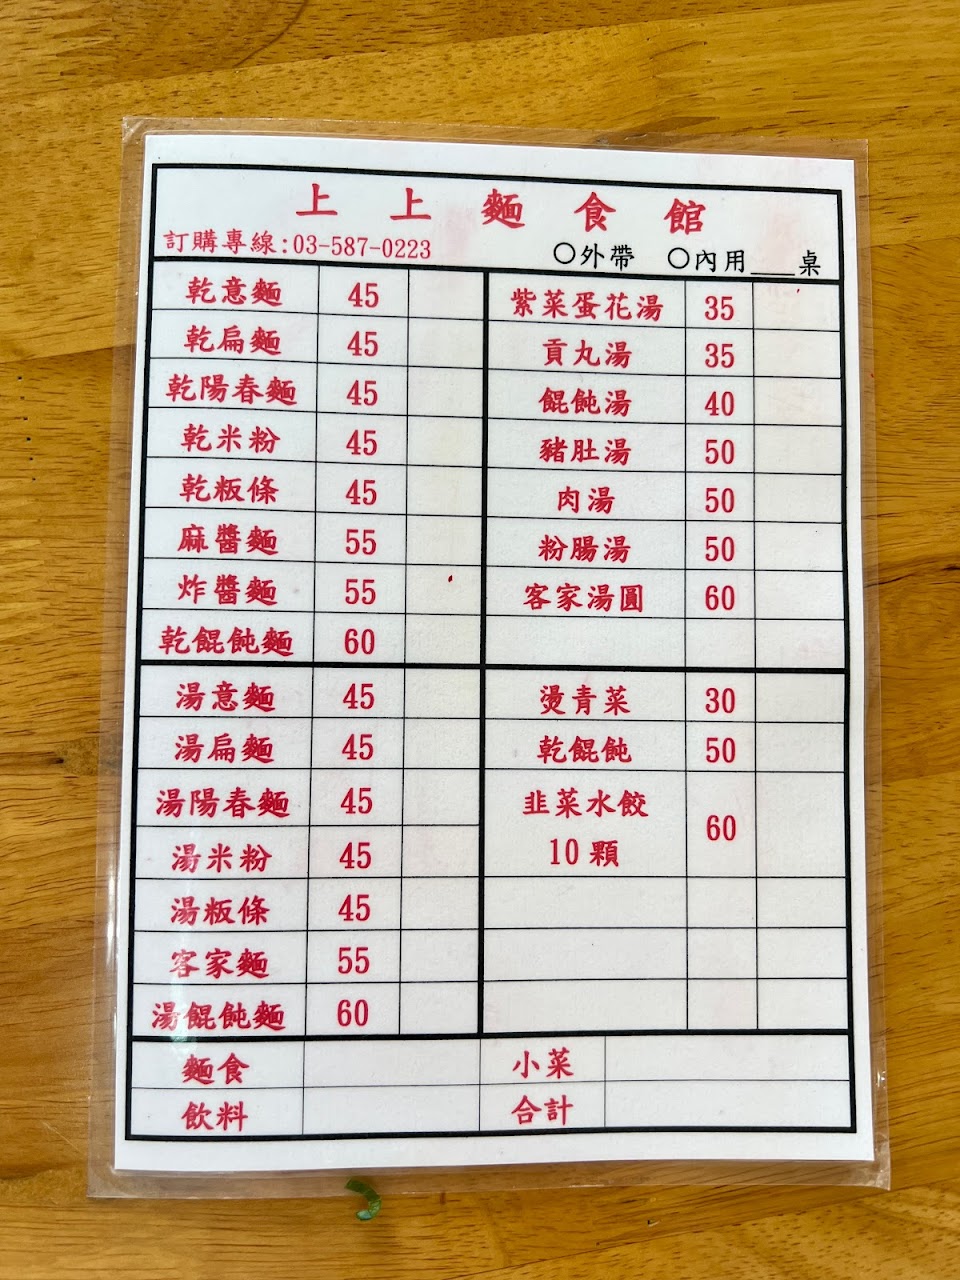 上上麵食館
訂購專線:03-587-0223
○外帶 ○內用___桌
乾意麵 45
乾扁麵 45
乾陽春麵 45
乾米粉 45
乾粄條 45
麻醬麵 55
炸醬麵 55
乾餛飩麵 60
湯意麵 45
湯扁麵 45
湯陽春麵 45
湯米粉 45
湯粄條 45
客家麵 55
湯餛飩麵 60
紫菜蛋花湯 35
貢丸湯 35
餛飩湯 40
豬肚湯 50
肉湯 50
粉腸湯 50
客家湯圓 60
燙青菜 30
乾餛飩 50
韭菜水餃
10顆 60
麵食 小菜
飲料 合計